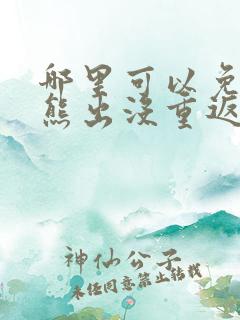 哪里可以免
熊出没重返
神仙公子
未经同意禁止转载